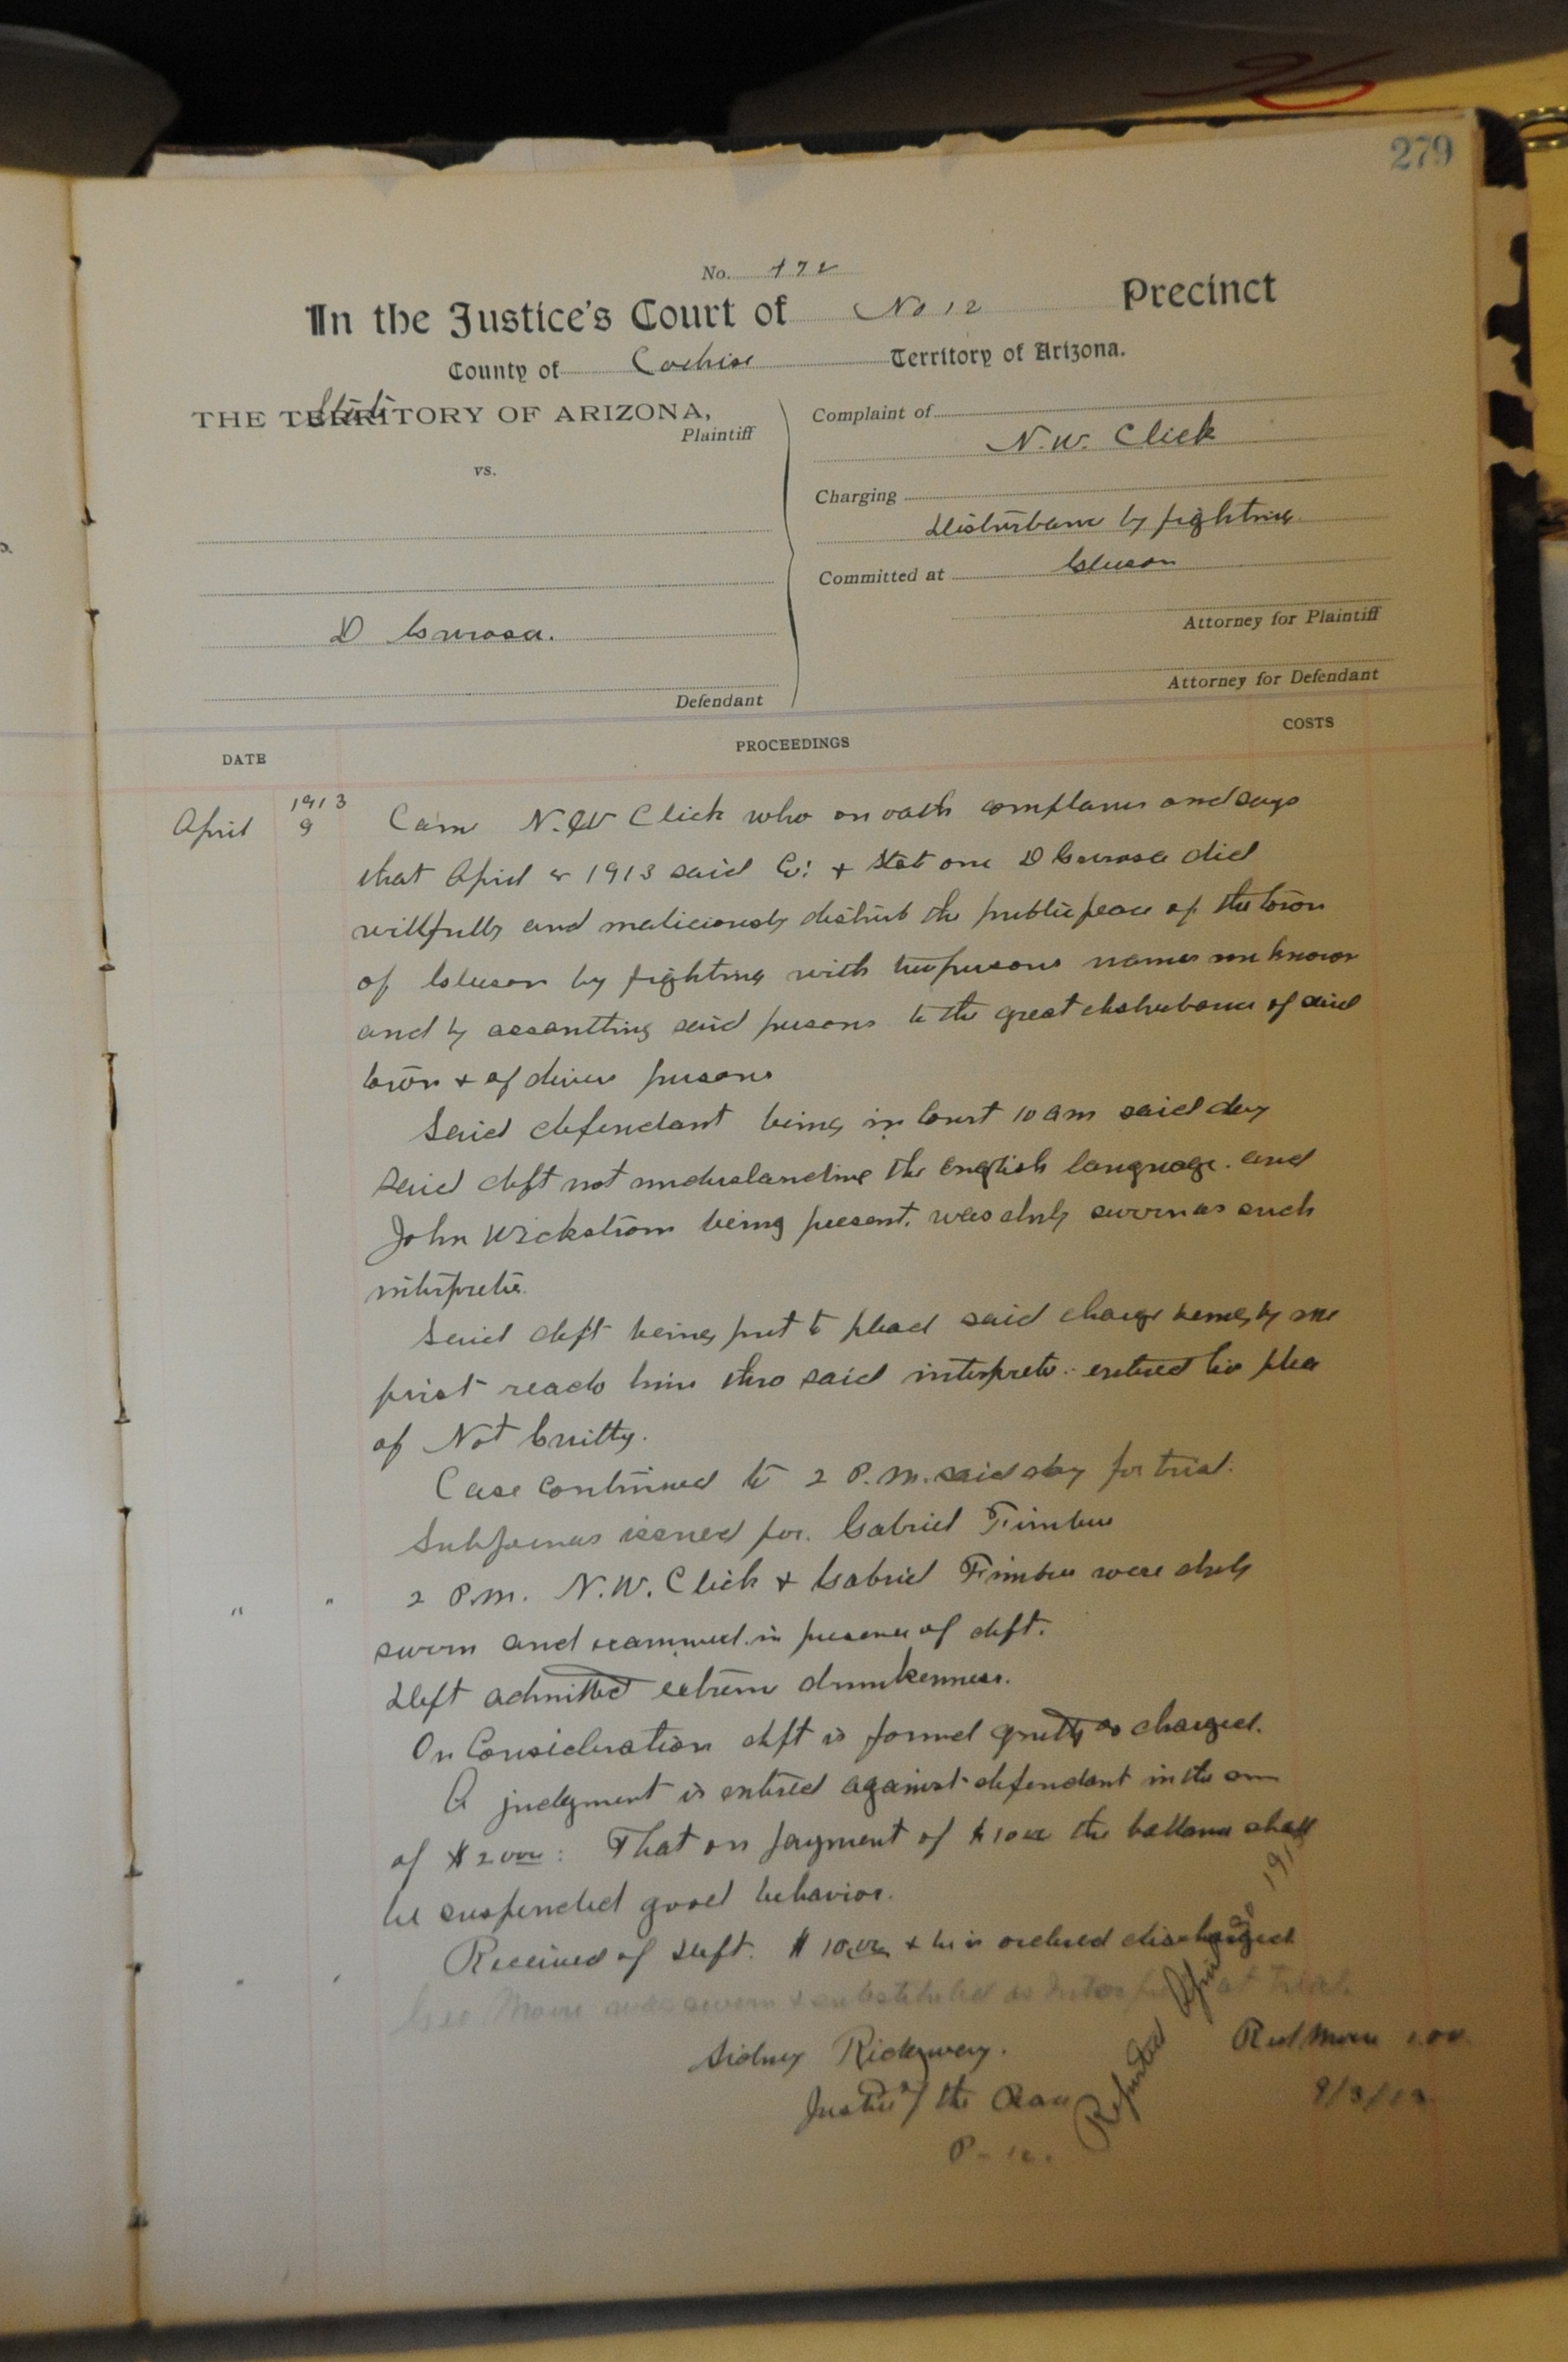 279
No. 472
In the Justice's Court of No 12 Precinct
County of Cochise Territory of Arizona.
State
THE TERRITORY OF ARIZONA,
Plaintiff
vs.
D
Defendant
Complaint of
N.W. Click
Charging
Disturbance by fighting
Committed at Gleeson
Attorney for Plaintiff
Attorney for Defendant
DATE PROCEEDINGS COSTS
1913
April 9 Came N.W Click who on oath complains and says
that April 8 1913 said Co: & State one D did
willfully and maliciously disturb the public peace of the town
of Gleeson by fighting with two persons names unknown
and by assaulting said persons to the great disturbance of said
town & of divers persons
Said defendant being in Court 10 am said day
said deft not understanding the English language. and
John Wickstrom being present, was duly sworn as such
interpreter.
Said deft being put to plead said charge being by me
first read to him thro said interpreter. entered his plea
of Not Guilty.
Case continued to 2 P.M. said day for trial.
Subpoenas issued for. Gabriel
" " 2 P.M. N.W. Click & Gabriel were duly
sworn and examined in presence of deft.
Deft admitted extreme drunkenness.
On Consideration deft is found guilty as charged.
A judgment is entered against defendant in the sum
of $20.00: That on payment of $10.00 the balance shall
be suspended good behavior.
Received of Deft. $10.00 & he is ordered discharged
Geo Moore was sworn & substituted as Interpreter at trial.
Sidney Ridgway.
Justice of the Peace
P-12.
Reported April 1913
Moore